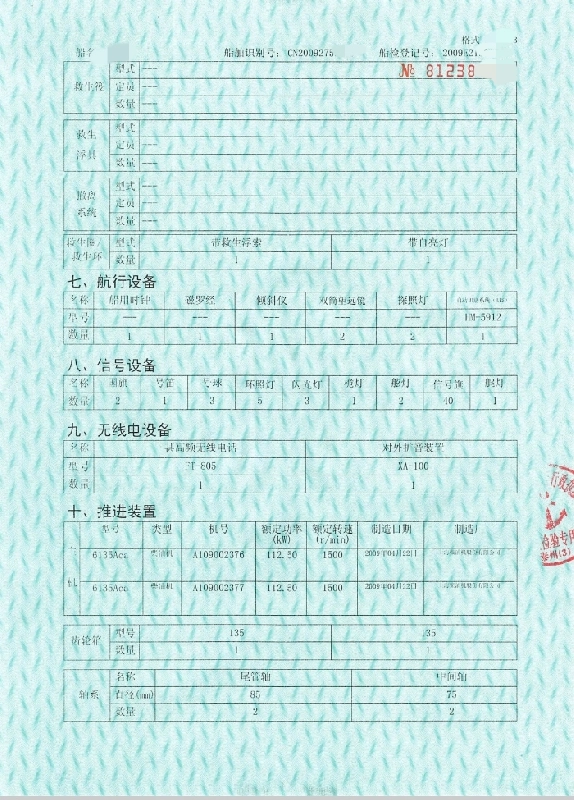 格式 3
船名 船舶识别号: CN2009275 船检登记号: 2009E21
№ 81238
救生筏 型式 ---
定员 ---
数量 ---
救生浮具 型式 ---
定员 ---
数量 ---
撤离系统 型式 ---
定员 ---
数量 ---
救生圈/救生环 型式 带救生浮索 带自亮灯
数量 1 1
七、航行设备
名称 船用时钟 磁罗经 倾斜仪 双筒望远镜 探照灯
型号 --- --- --- --- --- HM-5912
数量 1 1 1 2 2 1
八、信号设备
名称 国旗 号笛 号球 环照灯 闪光灯 桅灯 舷灯 信号旗 艉灯
数量 2 1 3 5 3 1 2 40 1
九、无线电设备
名称 甚高频无线电话 对外扩音装置
型号 FT-805 XA-100
数量 1 1
十、推进装置
主机 型号 类型 机号 额定功率(kW) 额定转速(r/min) 制造日期 制造厂
6135Aca 柴油机 A109002376 112.50 1500 2009年04月12日
6135Aca 柴油机 A109002377 112.50 1500 2009年04月12日
齿轮箱 型号 135 135
数量 1 1
轴系 名称 尾管轴 中间轴
直径(mm) 85 75
数量 2 2
检验专用
泰州(3)